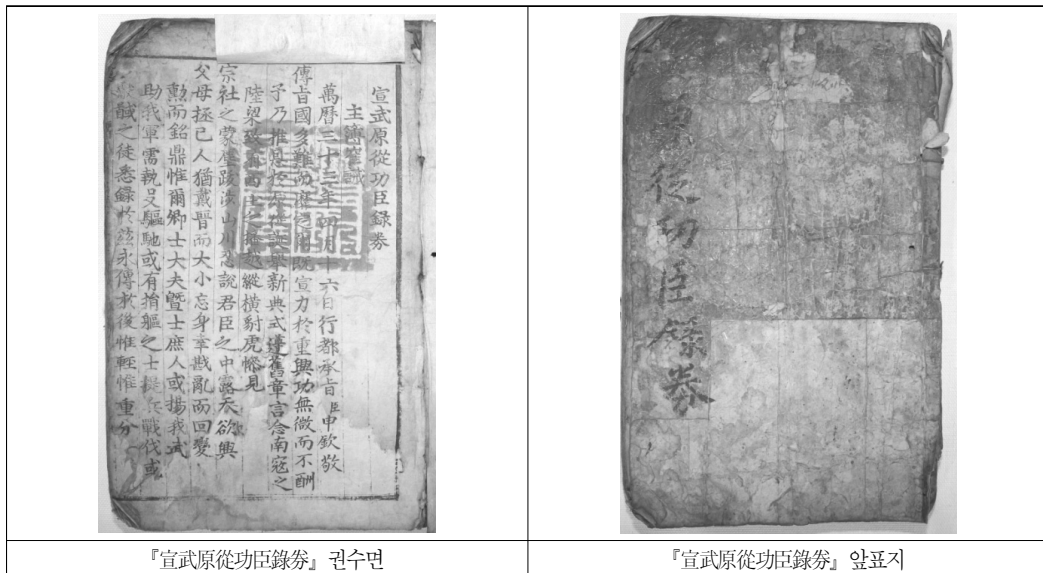 宣武原從功臣錄券
主簿崔誠
萬曆三十三年四月十六日行都承旨臣申欽敬
傳旨國多難而
宣力於重興功無微而不酬
予乃推恩
擧新典式遵舊章言念南寇之
陸梁
縱橫豺虎慘見
宗社之蒙塵跋涉山川忍說君臣之中露天欲興
父母拯己人猶戴晉而大小忘身幸戡亂而回鑾
勳而銘鼎惟爾卿士大夫曁士庶人或揚我武
助我軍需執殳驅馳或有捐軀之士提兵戰伐或
馘之徒悉錄於玆永傳於後惟輕惟重分
從功臣錄券
『宣武原從功臣錄券』 권수면
『宣武原從功臣錄券』 앞표지